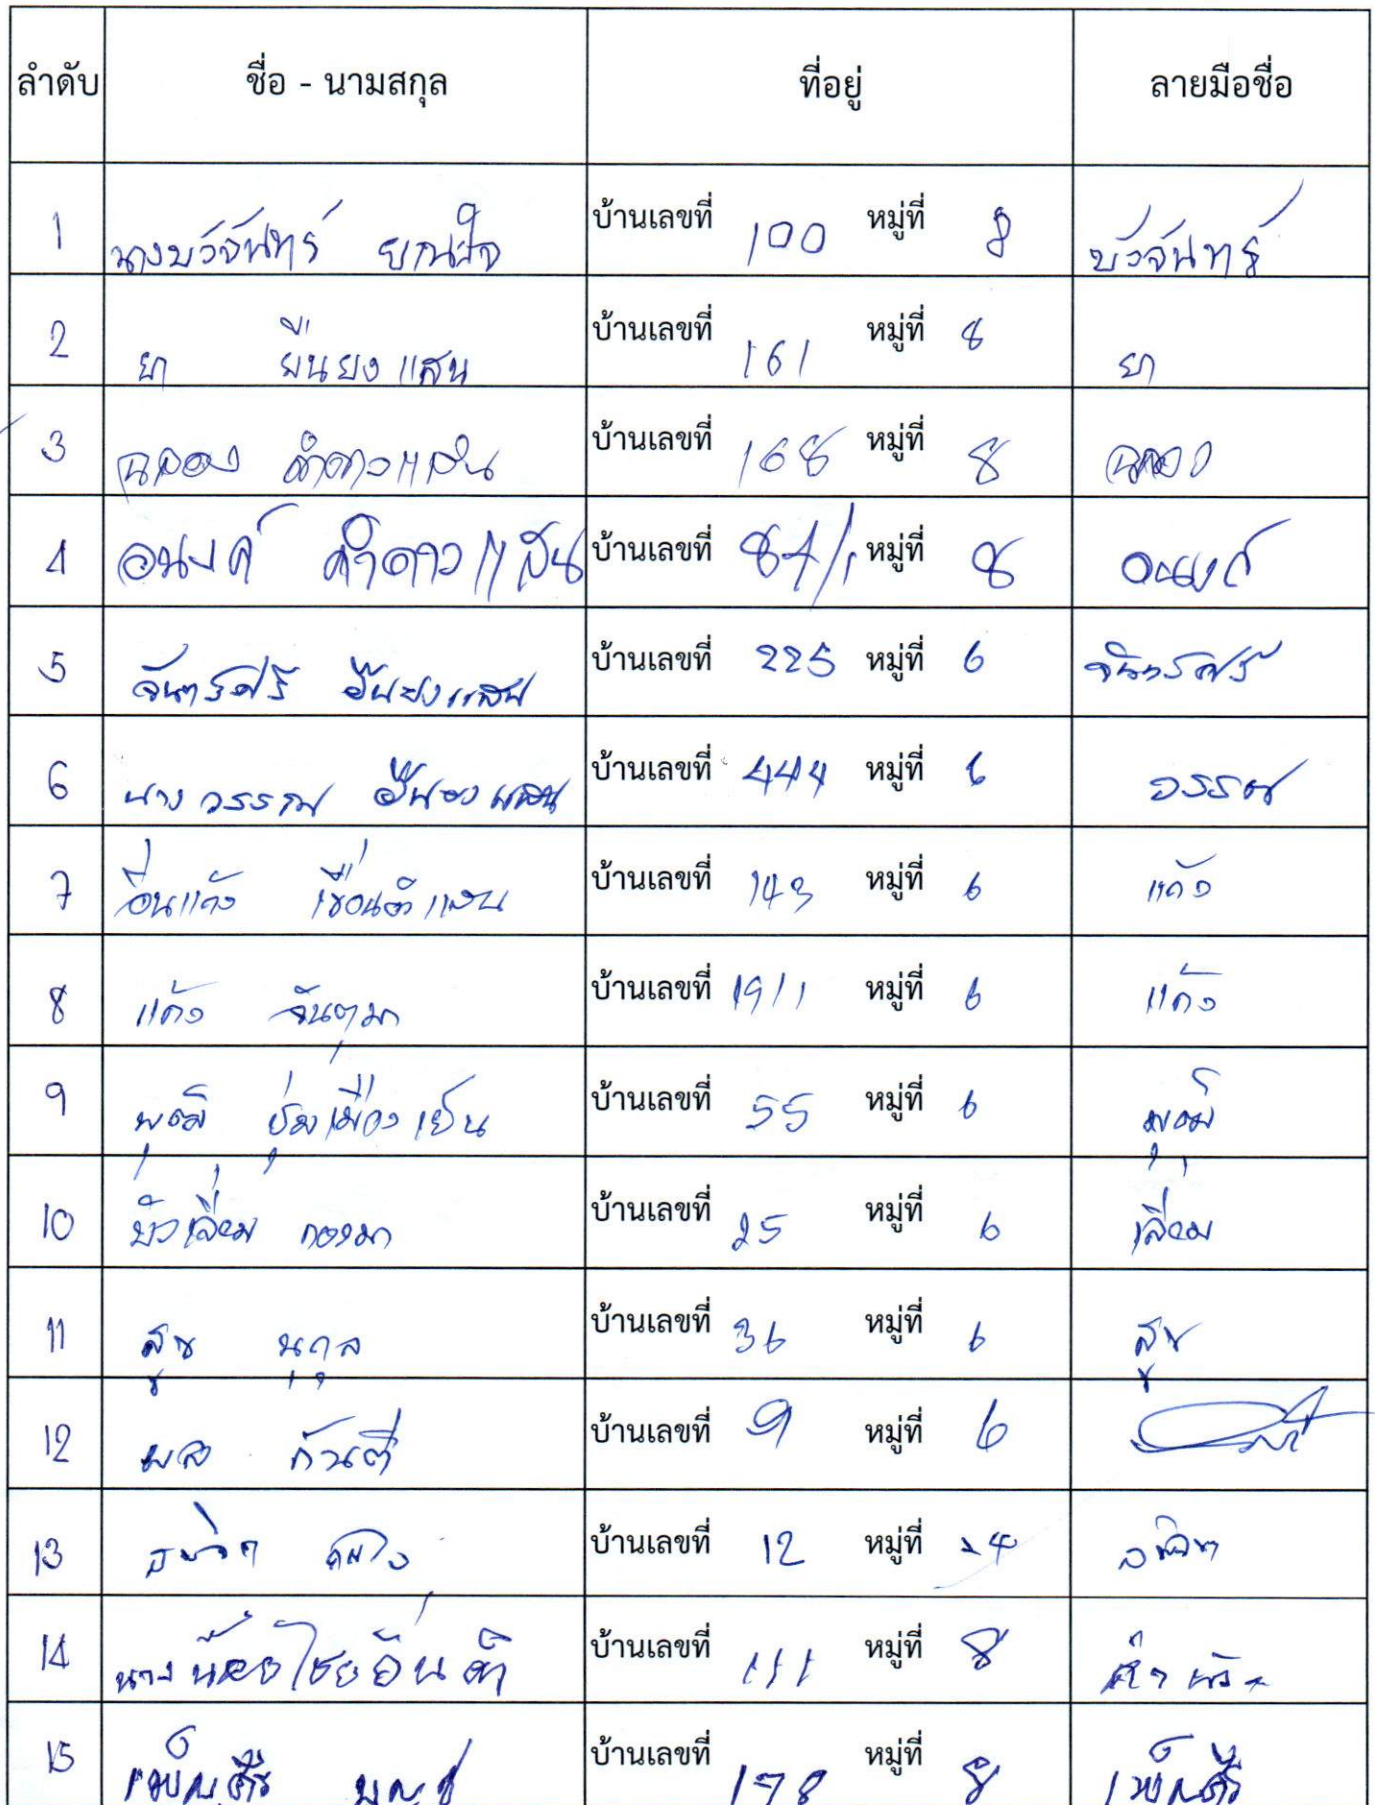 ลำดับ ชื่อ - นามสกุล ที่อยู่ ลายมือชื่อ
1 นางบัวจันทร์ ยาณปัน บ้านเลขที่ 100 หมู่ที่ 8 บัวจันทร์
2 ยา ยืนยงแสน บ้านเลขที่ 161 หมู่ที่ 8 ยา
3 ฉลอง คำดาวแสน บ้านเลขที่ 168 หมู่ที่ 8 ฉลอง
4 อนงค์ คำดาวแสน บ้านเลขที่ 84/1 หมู่ที่ 8 อนงค์
5 จันทร์ศรี ยืนยงแสน บ้านเลขที่ 225 หมู่ที่ 6 จันทร์ศรี
6 นาง วรรณ ยืนยงแสน บ้านเลขที่ 444 หมู่ที่ 6 วรรณ
7 อื่นแก้ว เขื่อนคำแสน บ้านเลขที่ 143 หมู่ที่ 6 แก้ว
8 แก้ว จันตุมา บ้านเลขที่ 19/1 หมู่ที่ 6 แก้ว
9 ปุ่มเมืองเย็น บ้านเลขที่ 55 หมู่ที่ 6
10 บัวเลื่อม กองมา บ้านเลขที่ 25 หมู่ที่ 6 เลื่อม
11 สุข นุกุล บ้านเลขที่ 36 หมู่ที่ 6 สุข
12 ก้วนตี บ้านเลขที่ 9 หมู่ที่ 6
13 บ้านเลขที่ 12 หมู่ที่
14 นาง น้อย ไชยอิ่นคำ บ้านเลขที่ 111 หมู่ที่ 8
15 เพ็ญศรี บ้านเลขที่ 178 หมู่ที่ 8 เพ็ญศรี